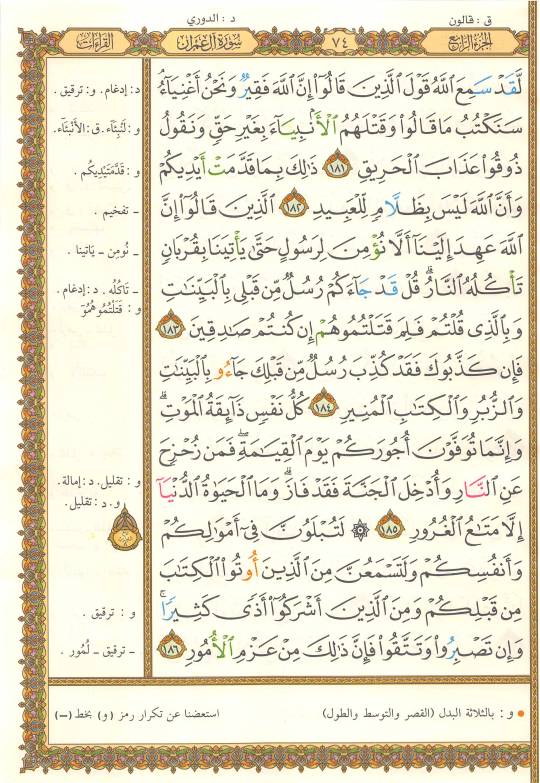 ق : قالون
د : الدوري
الجزء الرابع
٧٤
سورة آل عمران
القراءات
لَّقَدْ سَمِعَ ٱللَّهُ قَوْلَ ٱلَّذِينَ قَالُوٓا۟ إِنَّ ٱللَّهَ فَقِيرٌ وَنَحْنُ أَغْنِيَآءُ
سَنَكْتُبُ مَا قَالُوا۟ وَقَتْلَهُمُ ٱلْأَنۢبِيَآءَ بِغَيْرِ حَقٍّ وَنَقُولُ
ذُوقُوا۟ عَذَابَ ٱلْحَرِيقِ ١٨١ ذَٰلِكَ بِمَا قَدَّمَتْ أَيْدِيكُمْ
وَأَنَّ ٱللَّهَ لَيْسَ بِظَلَّامٍ لِّلْعَبِيدِ ١٨٢ ٱلَّذِينَ قَالُوٓا۟ إِنَّ
ٱللَّهَ عَهِدَ إِلَيْنَآ أَلَّا نُؤْمِنَ لِرَسُولٍ حَتَّىٰ يَأْتِيَنَا بِقُرْبَانٍ
تَأْكُلُهُ ٱلنَّارُ ۗ قُلْ قَدْ جَآءَكُمْ رُسُلٌ مِّن قَبْلِى بِٱلْبَيِّنَٰتِ
وَبِٱلَّذِى قُلْتُمْ فَلِمَ قَتَلْتُمُوهُمْ إِن كُنتُمْ صَٰدِقِينَ ١٨٣
فَإِن كَذَّبُوكَ فَقَدْ كُذِّبَ رُسُلٌ مِّن قَبْلِكَ جَآءُو بِٱلْبَيِّنَٰتِ
وَٱلزُّبُرِ وَٱلْكِتَٰبِ ٱلْمُنِيرِ ١٨٤ كُلُّ نَفْسٍ ذَآئِقَةُ ٱلْمَوْتِ ۗ
وَإِنَّمَا تُوَفَّوْنَ أُجُورَكُمْ يَوْمَ ٱلْقِيَٰمَةِ ۖ فَمَن زُحْزِحَ
عَنِ ٱلنَّارِ وَأُدْخِلَ ٱلْجَنَّةَ فَقَدْ فَازَ ۗ وَمَا ٱلْحَيَوٰةُ ٱلدُّنْيَآ
إِلَّا مَتَٰعُ ٱلْغُرُورِ ١٨٥ ۞ لَتُبْلَوُنَّ فِىٓ أَمْوَٰلِكُمْ
وَأَنفُسِكُمْ وَلَتَسْمَعُنَّ مِنَ ٱلَّذِينَ أُوتُوا۟ ٱلْكِتَٰبَ
مِن قَبْلِكُمْ وَمِنَ ٱلَّذِينَ أَشْرَكُوٓا۟ أَذًى كَثِيرًا ۚ
وَإِن تَصْبِرُوا۟ وَتَتَّقُوا۟ فَإِنَّ ذَٰلِكَ مِنْ عَزْمِ ٱلْأُمُورِ ١٨٦
د: إدغام . و: ترقيق .
و: لَنۢبِئَآء . ق: الأَنۢبِئَآء .
و : قَدَّمَتَيْدِيكُم .
ـ تفخيم .
ـ نُومِن ـ يَاتِينا .
ـ تَاكُلُه . د: إدغام .
و : قَتَلْتُمُوهُمُۥٓ
و : تقليل. د: إمالة.
و . د : تقليل.
و : ترقيق .
ـ ترقيق ـ لُمُور .
• و : بالثلاثة البدل (القصر والتوسط والطول)
استعضنا عن تكرار رمز (و) بخط (ـ)